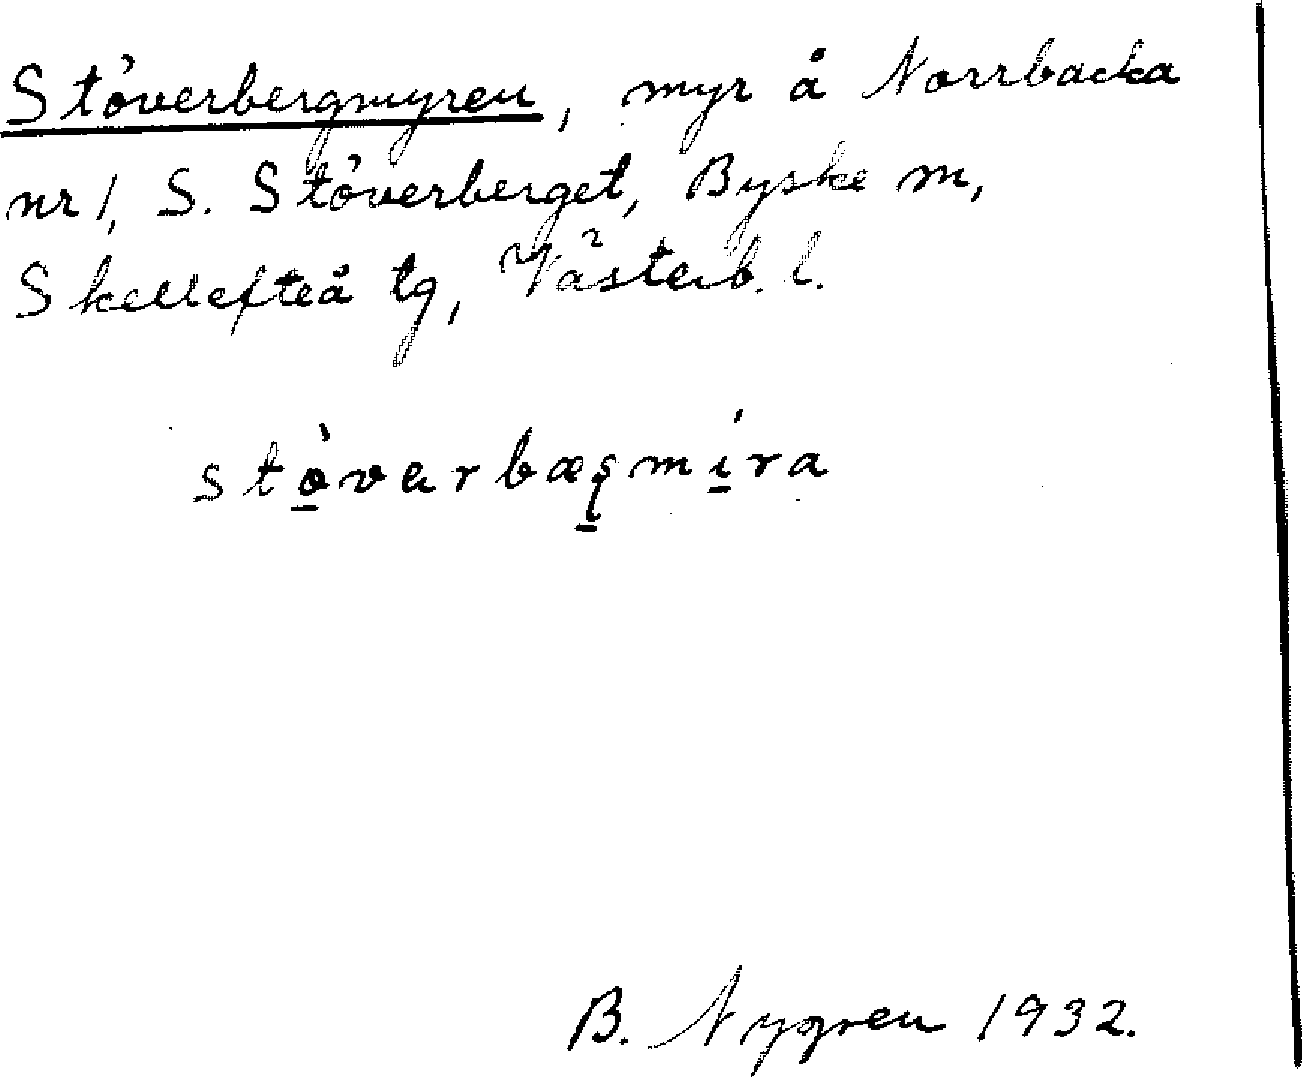 Stöverbergmyren, myr å Norrbacka
nr 1, S. Stöverberget, Byske sn,
Skellefteå tg, Västerb. l.
stò̱vərbæʂmí̱ra
B. Nygren 1932.